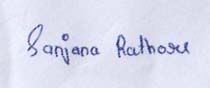 Sanjana Rathore